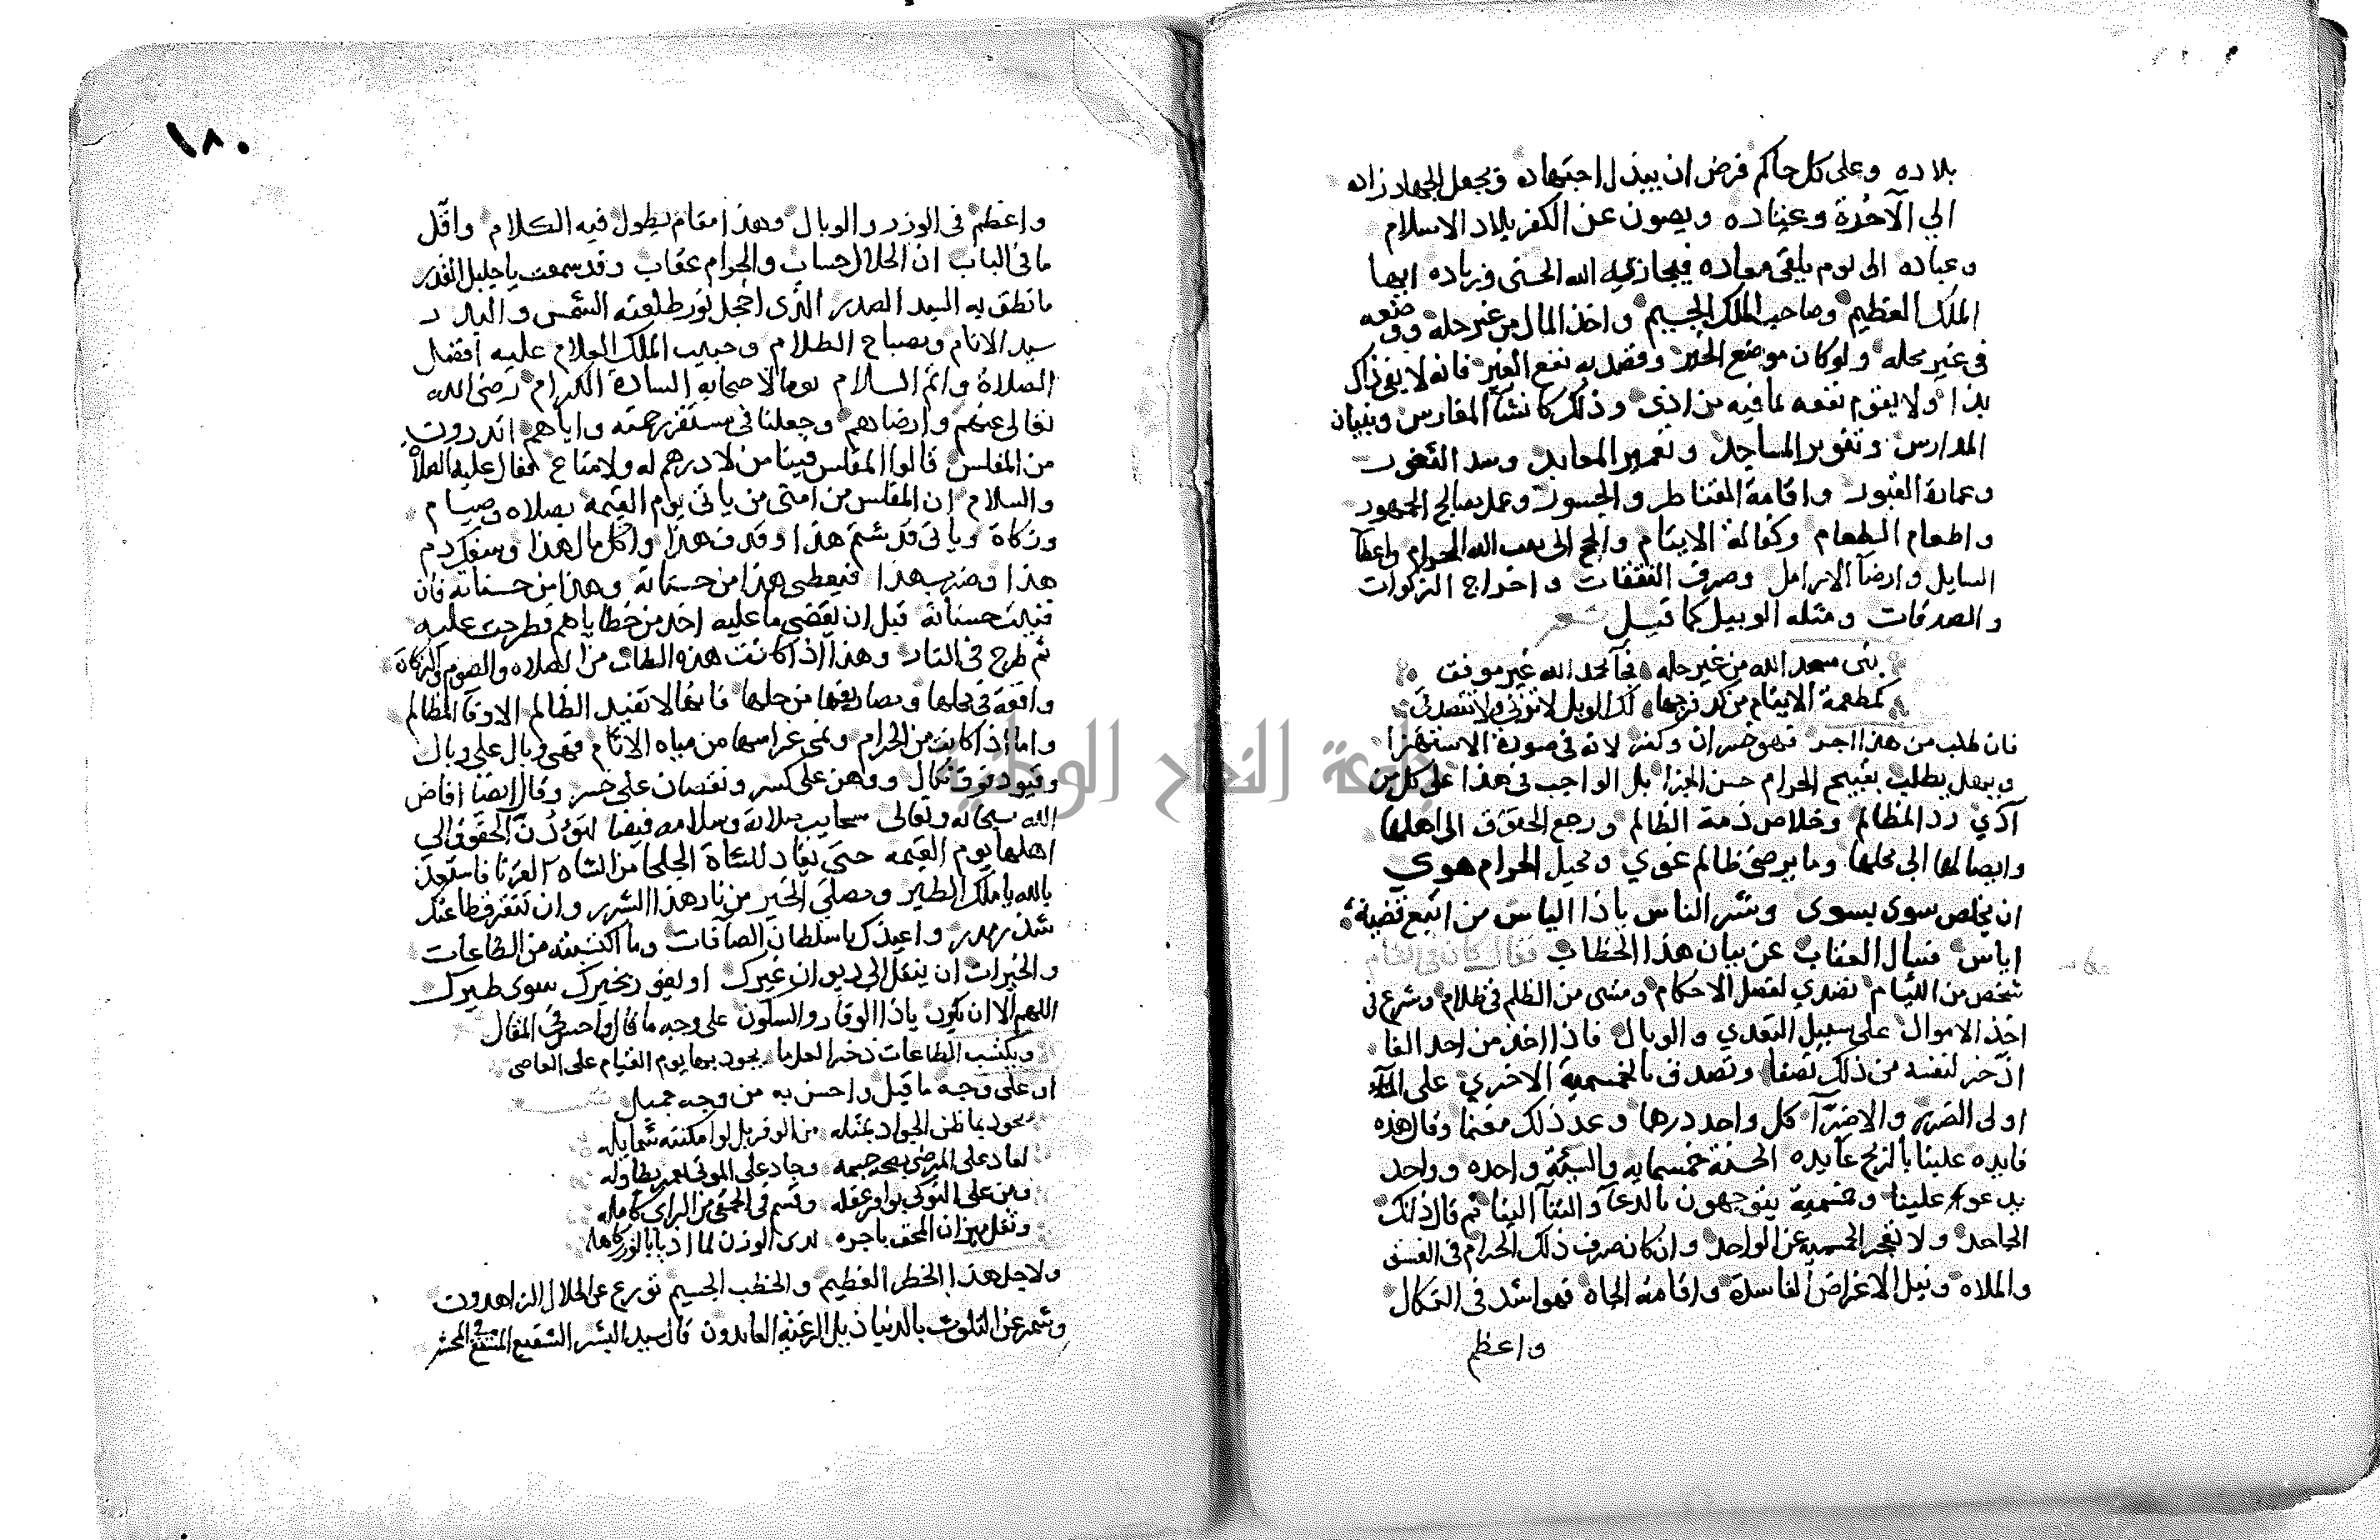 بلاده وعلى كل حاكم فرض ان يبذل اجتهاده ويجعل الجهاد زاده
الي الآخرة وعتاده ويصون عن الكفر بلاد الاسلام
وعباده الى يوم يلقى معاده فيجازيه الله الحسنى وزياده ايها
الملك العظيم وصاحب الملك الجسيم واخذ المال من غير حله ووضعه
فى غير محله ولو كان موضع الخير وقصد به نفع الغير فانه لا يفى ذاك
بذا ولا يقوم نفعه بما فيه من اذى وذلك كانشآ المغارس وبنيان
المدارس وتنوير المساجد وتعمير المعابد وسد الثغور
وعمارة القبور واقامة القناطر والجسور وعمل مصالح الجمهور
واطعام الطعام وكفالة الايتام والحج الى بيت الله الحرام واعطآ
السايل وارضآ الارامل وصرف النفقات واخراج الزكوات
والصدقات ومثله الوبيل كما قيل شعر
بنى مسجد الله من غير حله فجآ بحمد الله غير موفق
كمطعمة الايتام من كد فرجها لك الويل لا تزنى ولا تتصدقى
فان طلب من هذا اجر فهو خسران وكفر لانه فى صورة الاستهزا
وبيهل يطلب بقبيح الحرام حسن الجزا بل الواجب فى هذا على كل من
آذي رد المظالم وخلاص ذمة الظالم ورجع الحقوق الى اهلها
وايصالها الى محلها وما يرضى ظالم غوي وبخيل الحرام هوي
ان يخلص سوى بسوى وشر الناس ياذا الباس من اتبع قضية
اياس فسال العقاب عن بيان هذا الخطاب فقال كان فى الشام
شخص من اللئام تصدي لفصل الاحكام ومشى من الظلم فى ظلام وشرع فى
اخذ الاموال على سبيل التعدي والوبال فاذا اخذ من احد الفا
ادخر لنفسه من ذلك نصفا وتصدق بالخمسمية الاخري على
اولى الضرر والاضرآ كل واحد درهما وعد ذلك مغنما وقال هذه
فايده علينا بالربح عايده الحسنة خمسمايه والسيئة واحده وواحد
يدعو علينا وخمسمية يتوجهون بالدعآ والثنآ الينا ثم قال ذلك
الجاحد ولا تعجز الخمسميه عن الواحد وان كان صرف ذلك الحرام فى الفسق
والملاه ونيل الاغراض الفاسدة واقامة الجاه فهو اشد فى النكال
واعظم
١٨٠
واعظم فى الوزر والوبال وهذا مقام يطول فيه الكلام واقل
ما فى الباب ان الحلال حساب والحرام عقاب وقد سمعت يا جليل القدر
ما نطق به السيد الصدر الذى اخجل نور طلعته الشمس والبدر
سيد الانام ومصباح الظلام وحبيب الملك العلام عليه افضل
الصلاة واتم السلام يوما لاصحابه السادة الكرام رضى الله
تعالى عنهم وارضاهم وجعلنا فى مستقر رحمته واياهم اتدرون
من المفلس قالوا المفلس فينا من لا درهم له ولا متاع فقال عليه الصلاة
والسلام ان المفلس من امتى من ياتى يوم القيمة بصلاه وصيام
وزكاة وياتى قد شتم هذا وقذف هذا واكل مال هذا وسفك دم
هذا وضرب هذا فيعطى هذا من حسناته وهذا من حسناته فان
فنيت حسناته قبل ان يقضى ما عليه اخذ من خطاياهم فطرحت عليه
ثم طرح فى النار وهذا اذا كانت هذه الطاعات من الصلاه والصوم والزكاة
واقعة فى محلها ومصاريفها من حلها فانها لا تفيد الظالم الا وفآ المظالم
واما اذا كانت من الحرام ونمى غراسها من مياه الاثام فهى وبال على وبال
وقيود فوق نكال ووهن على كسر ونقصان على خسر وقال ايضا افاض
الله سبحانه وتعالى سحايب صلاته وسلامه فيضا لتؤدن الحقوق الى
اهلها يوم القيمه حتى يقاد للشاة الجلحا من الشاة القرنا فاستعذ
بالله يا ملك الطير ومصلى الخير من نار هذا الشرر وان تتفرق طاعتك
شذر مذر واعيذك يا سلطان الصآفات وما اكتسبته من الطاعات
والخيرات ان ينقل الى ديوان غيرك او يفوز بخيرك سوى طيرك
اللهم الا ان يكون ياذا الوقار والسكون على وجه ما قال واحسن فى المقال
ويكتسب الطاعات ذخرا لعلها يجود بها يوم القيام على العاصى
او على وجه ما قيل واحسن به من وجه جميل شعر
يجود بما ظن الجواد بمثله من الوفر بل لو امكنته شمايله
لعاد على المرضى بصحة جسمه وجاد على الموتى بعمر يطاوله
ومن على النوكى بوافر عقله وقسم فى الحمقى من الراى كامله
وثقل ميزان المحق باجره لدى الوزن لما اذ بابا لوزر كاهله
ولاجل هذا الخطر العظيم والخطب الجسيم تورع عن الحلال الزاهدون
وشمر عن التلوث بالدنيا ذيل الرغبة العابدون قال سيد البشر الشفيع المشفع فى المحشر